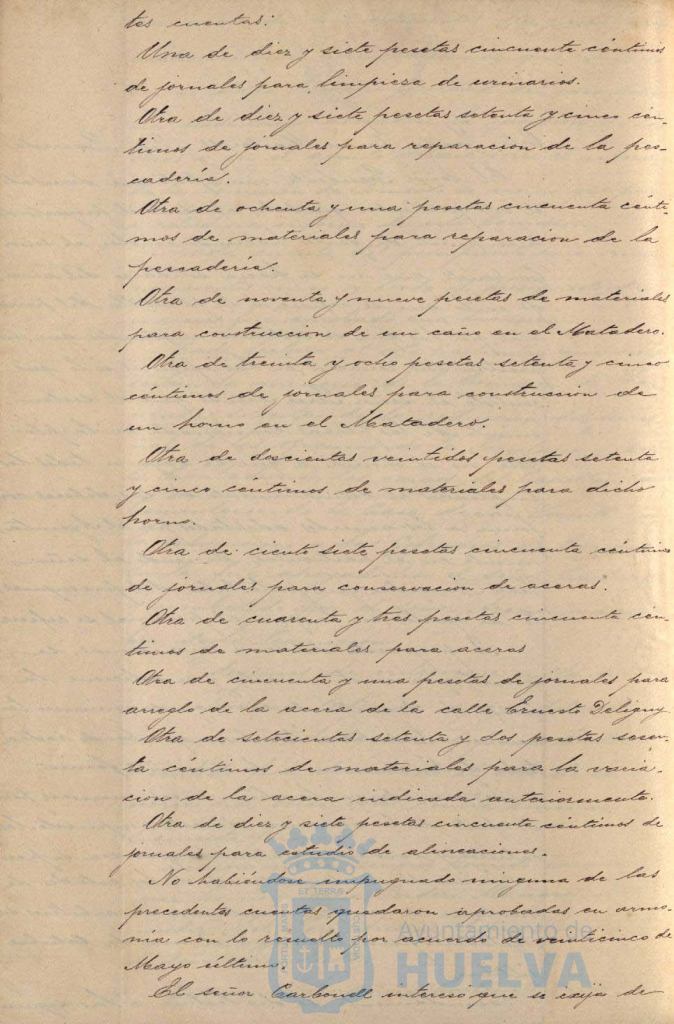 tes cuentas:
Una de diez y siete pesetas cincuenta céntimos
de jornales para limpieza de urinarios.
Otra de diez y siete pesetas setenta y cinco cén-
timos de jornales para reparacion de la pes-
cadería.
Otra de ochenta y una pesetas cincuenta cénti-
mos de materiales para reparacion de la
pescadería.
Otra de noventa y nueve pesetas de materiales
para construccion de un caño en el Matadero.
Otra de treinta y ocho pesetas setenta y cinco
céntimos de jornales para construccion de
un horno en el Matadero.
Otra de doscientas veintidos pesetas setenta
y cinco céntimos de materiales para dicho
horno.
Otra de ciento siete pesetas cincuenta céntimos
de jornales para conservacion de aceras.
Otra de cuarenta y tres pesetas cincuenta cén-
timos de materiales para aceras
Otra de cincuenta y una pesetas de jornales para
arreglo de la acera de la calle Ernesto Deligny
Otra de setecientas setenta y dos pesetas sesen-
ta céntimos de materiales para la varia-
cion de la acera indicada anteriormente.
Otra de diez y siete pesetas cincuenta céntimos de
jornales para estudio de alineaciones.
No habiéndose impugnado ninguna de las
precedentes cuentas quedaron aprobadas en armo-
nia con lo resuelto por acuerdo de veinticinco de
Mayo último.
El señor Carbonell interesó que se exija de
Ayuntamiento de
HUELVA